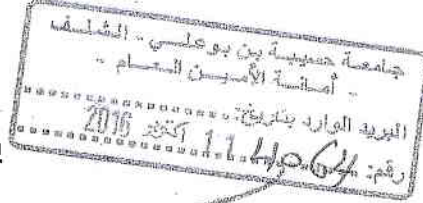 جامعة حسيبة بن بوعلي - الشلف
- أمانة الأمين العام -
البريد الوارد بتاريخ:
11 أكتوبر 2016
رقم: